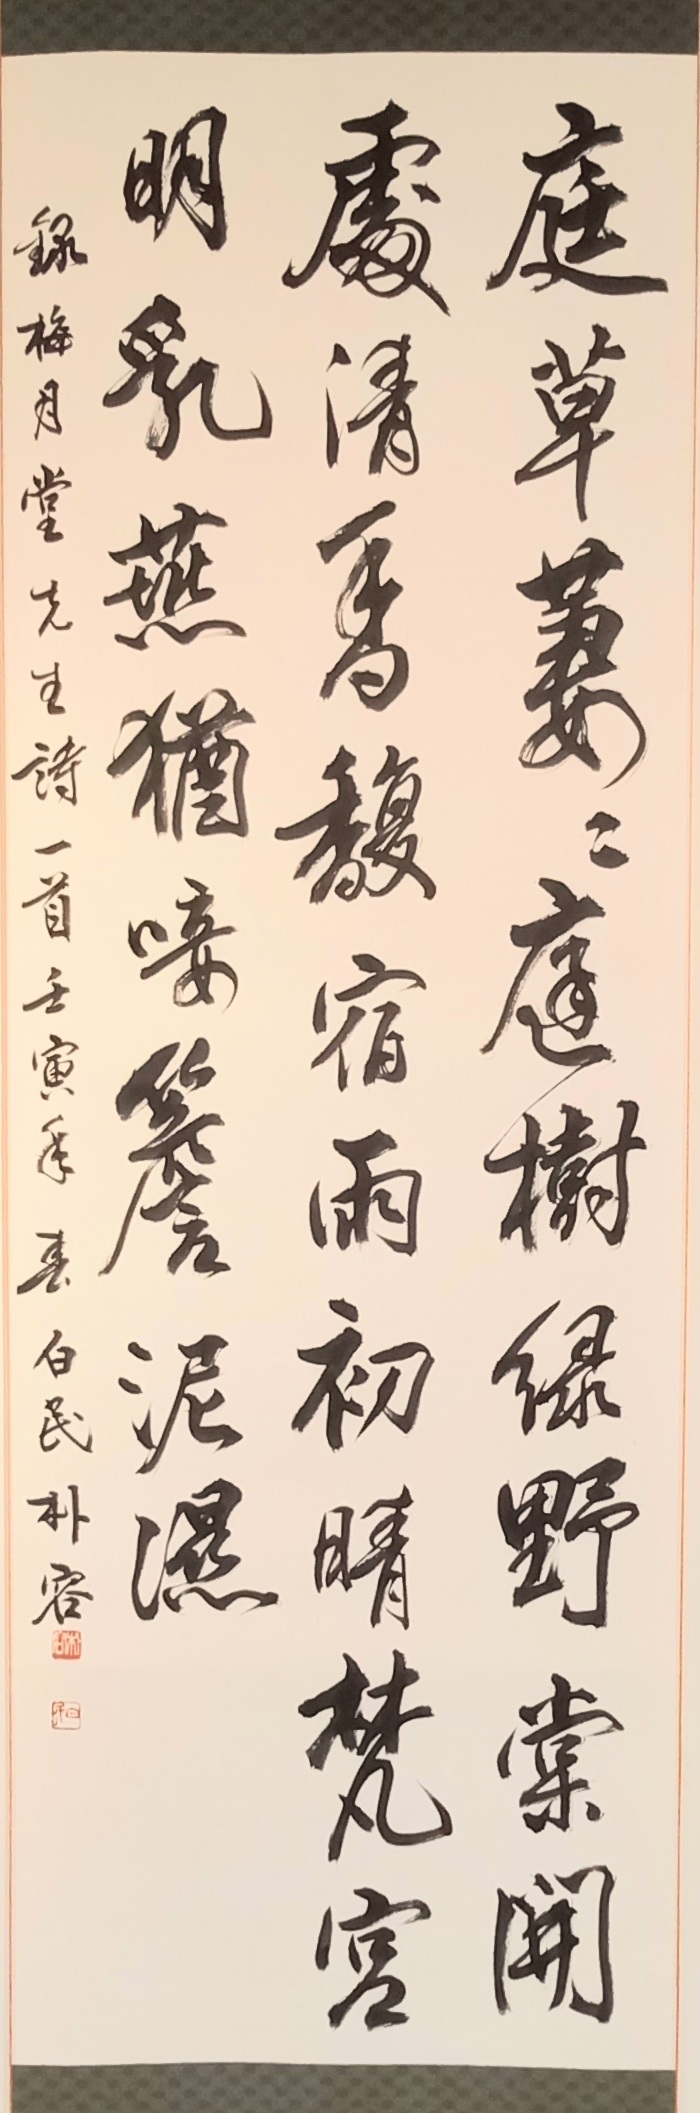 庭草萋〻庭樹綠野棠開
處清香馥宿雨初晴梵宮
明乳燕猶唼簷泥濕
錄梅月堂先生詩一首壬寅年春白民朴容